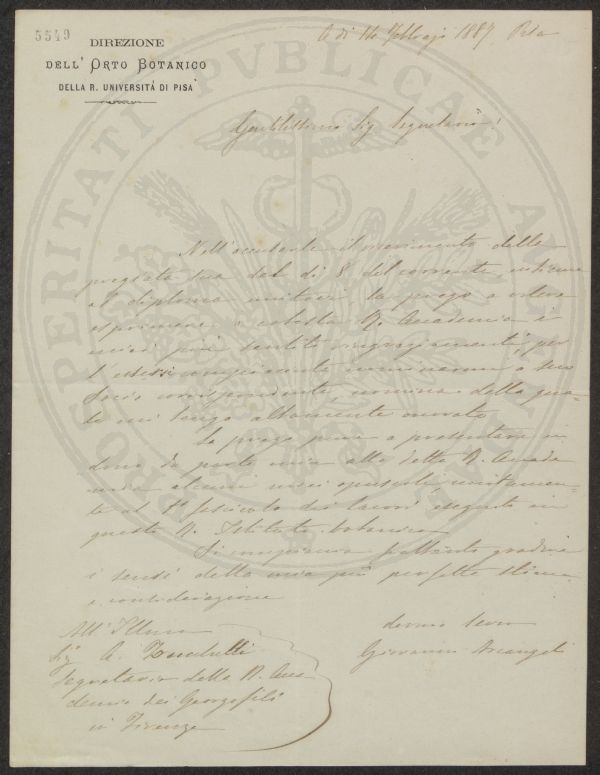 5549
DIREZIONE
DELL' ORTO BOTANICO
DELLA R. UNIVERSITÀ DI PISA
A di 14 Febbrajo 1887 Pisa
PROSPERITATI PUBLICAE AUGENDAE
Gentilissimo Sig Segretario!
Nell'accusarle il ricevimento della
pregiata sua del di 8 del corrente insieme
al diploma unitovi, la prego a volere
esprimere a codesta R. Accademia i
miei più sentiti ringraziamenti per
nominarmi a suo
socio corrispondente, nomina della qua-
le mi tengo altamente onorato.
La prego pure a presentare in
dono da parte mia alla detta R. Accade
mia alcuni miei opuscoli unitamen-
te al 1º fascicolo dei lavori eseguiti in
questo R. Istituto botanico
Si frattanto gradire
i sensi della mia più perfetta stima
e considerazione
All' Illmo
Sig A.
Segretario della R. Acca
demia dei Georgofili
in Firenze
devmo servo
Giovanni Arcangeli